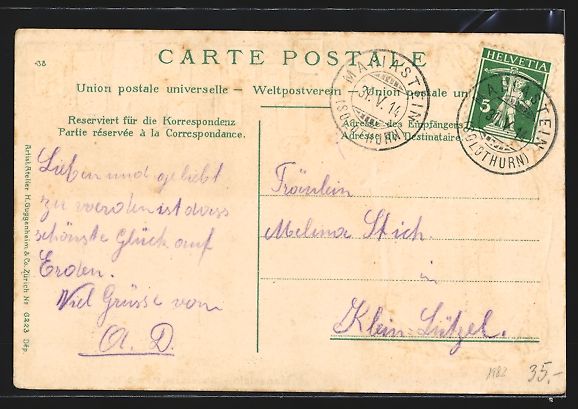 38
CARTE POSTALE
Union postale universelle — Weltpostverein — Union postale un
Reserviert für die Korrespondenz
Partie réservée à la Correspondance.
Adresse des Empfängers
Adresse du Destinataire
HELVETIA
5
MARIASTEIN
31.V.14
(SOLOTHURN)
MARIASTEIN
31.V.14
(SOLOTHURN)
Artist. Atelier H. Guggenheim & Co. Zürich No 6223 Dép.
Lieben und geliebt
zu werden ist dass
schönste Glück auf
Erden.
Viel Grüsse von
A. D.
Fräulein
Melena Stich.
in
Klein-Lützel.
1982
35.-